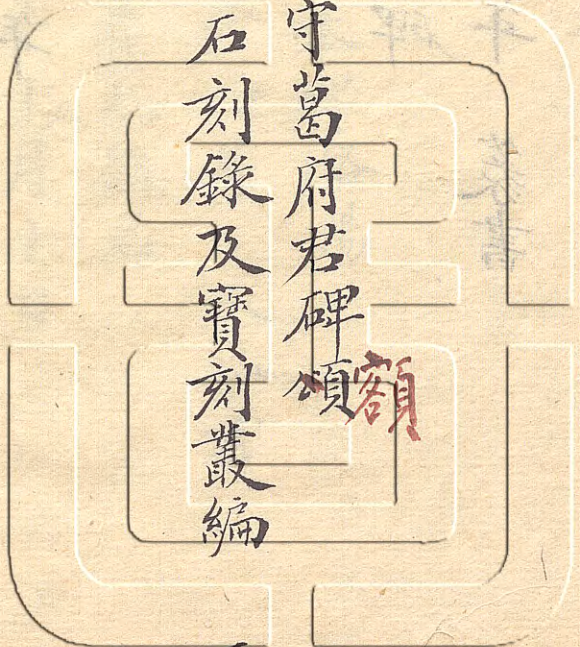 守葛府君碑頌額
石刻錄及寶刻叢編